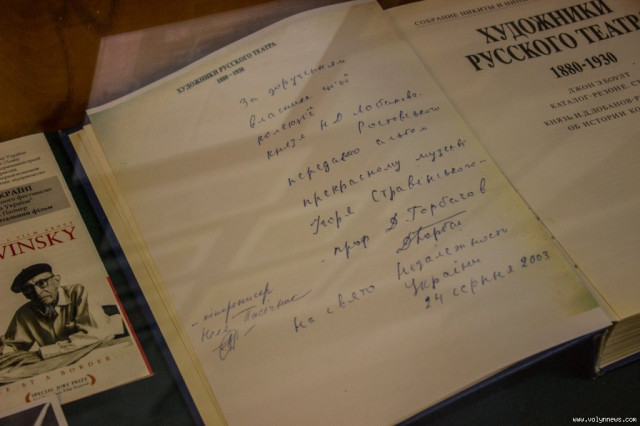 ХУДОЖНИКИ РУССКОГО ТЕАТРА
1880 – 1930
За дорученням
власника цієї
колекції
князя Н.Д. Лобанова-
Ростовського
передаю альбом
прекрасному музею
Ігоря Стравінського
- проф Д. Горбачов
На свято Незалежності
України
24 серпня 2003
СОБРАНИЕ НИКИТЫ И НИНЫ
ХУДОЖНИКИ
РУССКОГО ТЕАТРА
1880-1930
ДЖОН Э.БОУЛТ
КАТАЛОГ-РЕЗОНЕ.
КНЯЗЬ Н.Д.ЛОБАНОВ-
ОБ ИСТОРИИ
VINSKY
AT A BORDER
SPECIAL JURY PRIZE
www.volynnews.com